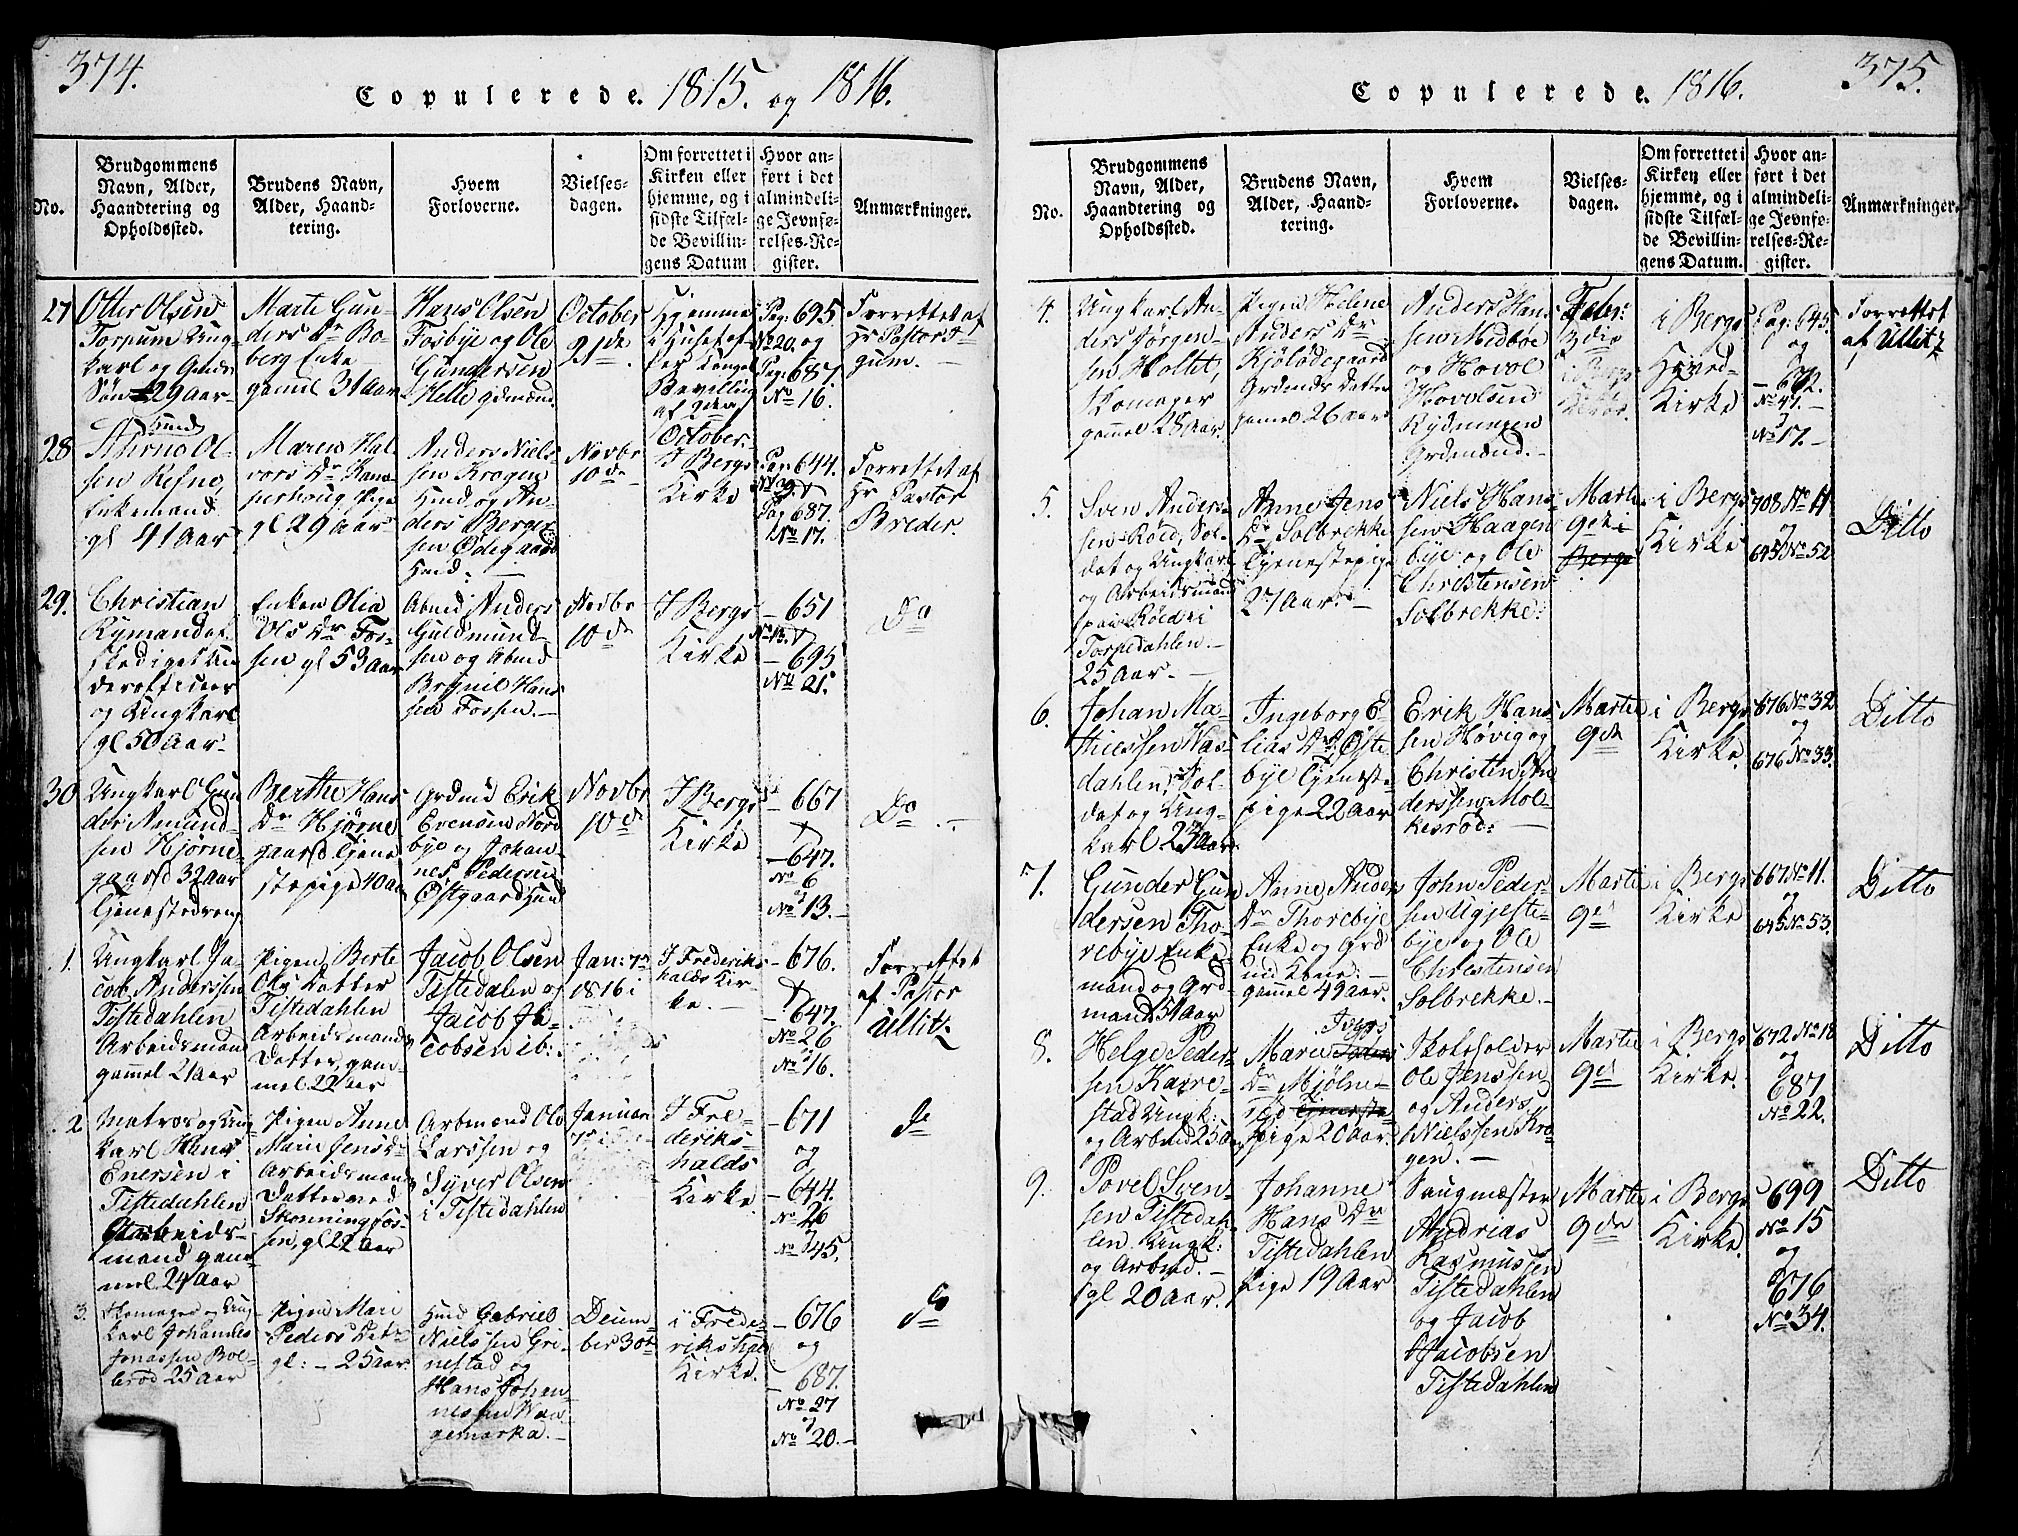 374.
Copulerede. 1815. og 1816.
No.
Brudgommens
Navn, Alder,
Haandtering og
Opholdssted.
Brudens Navn,
Alder, Haand-
tering.
Hvem
Forloverne.
Vielses-
dagen.
Om forrettet i
Kirken eller
hjemme, og i
sidste Tilfæl-
de Bevillin-
gens Datum
Hvor an-
ført i det
almindeli-
ge Jevnfø-
relses-Re-
gister.
Anmærkninger.
27
Otter Olsen
Torpum Ung-
karl og Gmds
Søn 29 Aar
Marte Gun-
ders Dr Bo-
berg Enke
gamel 31 Aar
Hans Olsen
Fosbye og Ole
Gundersen
Helle gdmænd.
October
21de
Hjemme
i Huset ef-
ter Kongel
Bevilling
af 2den
October.
Pag: 695.
No 20. og
Pag: 687
No 16.
Forrettet af
Hr Pastor
gum.
28
Huusmd
Ol-
sen Refne,
Enkemand
gl 41 Aar
Maren Hal
vors Dr
Pige
gl 29 Aar
Anders Niels-
sen Krogen
Huusmd og An-
ders Berge-
sen Ødegaard
Huusmd.
Novbr
10de
I Bergs
Kirke
Pag: 644.
No 39.
Pag 687.
No 17.
Forrettet af
Hr Pastor
Breder.
29.
Christian
Rymand af-
skediget Un
derofficeer
og Ungkarl
gl 50 Aar
Enken Olia
Ols Dr Fos-
sen gl 53 Aar
Arbmd Anders
Guldmund-
sen og Arbmd
Brynil Hans
sen Fossen.
Novbr
10de
I Bergs
Kirke
651
No 13.
695
No 21.
Do
30
Ungkarl Gun
der Amund-
sen Hjørne-
gaard 32 Aar
Tjenestedreng
Berthe Hans
Dr Hjørne
gaard Tjene
stepige 40 Aar
Grdmd Erik
Evensen Nord
bye og Johan-
nes Pedersen
Østgaard Huusmd
Novbr
10de
I Bergs
Kirke
667
647.
No 6
No 13.
Do
1.
Ungkarl Ja-
cob Anderssen
Tistedahlen
Arbeidsmand
gammel 21 Aar
Pigen Berte
Ols Datter
Tistedahlen
Arbeidsmands
Datter, gam-
mel 22 Aar
Jacob Olsen
Tistedalen og
Jacob Ja-
cobsen ib:
Jan: 7de
1816 i
I Frederiks
halds Kir-
ke.
676.
647.
No 26
No 16.
Forrettet
af Pastor
Ullitz
2
Matros og Ung
karl Hans
Enersen i
Tistedahlen
Arbeids-
mand gam-
mel 24 Aar
Pigen Anne
Marie Jensd-
Arbeidsmands
Datter ved
Skonningfos-
sen, gl 22 Aar
Arbmand Ole
Larssen og
Syver Olsen
i Tistedahlen
Januar
7de
I Fre-
deriks
halds
Kirke
671
og
644.
No 26
No 45.
Do
3.
Skomager og Ung
karl Johannes
Jonassen Bol-
erød 25 Aar
Pigen Mari
Peders Datr
gl: 25 Aar
Huusmd Gabriel
Nielssen Gri-
nestad og
Hans Johan-
nessen Wan-
gemarka.
Decem-
ber 30te
i Frede-
rikshalds
Kirke.
676
og
687.
No 27
No 20.
Do
375.
Copulerede. 1816.
No.
Brudgommens
Navn, Alder,
Haandtering og
Opholdssted.
Brudens Navn,
Alder, Haand-
tering.
Hvem
Forloverne.
Vielses-
dagen.
Om forrettet i
Kirken eller
hjemme, og i
sidste Tilfæl-
de Bevillin-
gens Datum.
Hvor an-
ført i det
almindeli-
ge Jevnfø-
relses-Re-
gister.
Anmærkninger.
4.
Ungkarl An-
ders Jørgen-
sen Holtet,
Skomager
gammel 28 Aar.
Pigen Helene
Anders Dr
Kjølødegaard
Grdmands Datter
gamel 26 Aar
Anders Han-
sen Midbøe
og Hovol
Hovolsen
Rydningen
Grdmænd.
Febr:
3die
i Bergs
Kirke
i Bergs
Hoved-
Kirke
Pag: 645.
og
672.
No 41.
No 17.
Forrettet
af Ullitz
5.
Sven Anders-
sen Røed, Sol-
dat og Ungkarl
og Arbeidsmand
paa Røed i
Torpedahlen.
25 Aar.
Anne Jens
Dr Solbrekke
Tjenestepige
27 Aar.
Niels Han-
sen Haagen-
bye og Ole
Christensen
Solbrekke.
Marti
9de
Bergs
i Bergs
Kirke
708 No 11
og
645 No 52
Ditto
6.
Johan Ma-
thiessen Was-
dahlen, Sol-
dat og Ung-
karl 23 Aar
Ingeborg E-
lias Dr Øste-
bye Tjenest-
pige 22 Aar
Erik Han-
sen Høvig og
Christen An
derssen Mol-
kerød.
Marti
9de
i Bergs
Kirke.
676 No 32
og
676 No 33.
Ditto
7.
Gunder Gun-
dersen Tho-
rebye Enke-
mand og Grd
mand 51 Aar
Anne Anders
Dr Thorebye
Enke og Grd
gammel 49 Aar.
John Peder-
sen Ugjeste-
bye og Ole
Christensen
Solbrekke.
Marti
9de
i Bergs
Kirke
667 No 11.
og
645 No 53.
Ditto
8.
Helge Peder-
sen Karre-
stad Ungk:
og Arbmd 25 Aar
Maren
Dr Mjølne-
rød Tjeneste
Pige 20 Aar.
Skoleholder
Ole Jenssen
og Anders
Nielssen Kro-
gen.
Marti
9de
i Bergs
Kirke.
672 No 18
og
687
No 22.
Ditto
9.
Povel Sven-
sen Tistedah-
len, Ungk:
og Arbmd.
gl 20 Aar.
Johanne
Hans Dr
Tistedahlen
Pige 19 Aar
Saugmester
Andrias
Rasmussen
Tistedahlen
og Jacob
Jacobsen
Tistedahlen
Marti
9de
i Bergs
Kirke.
699
No 15
og
676
No 34.
Ditto